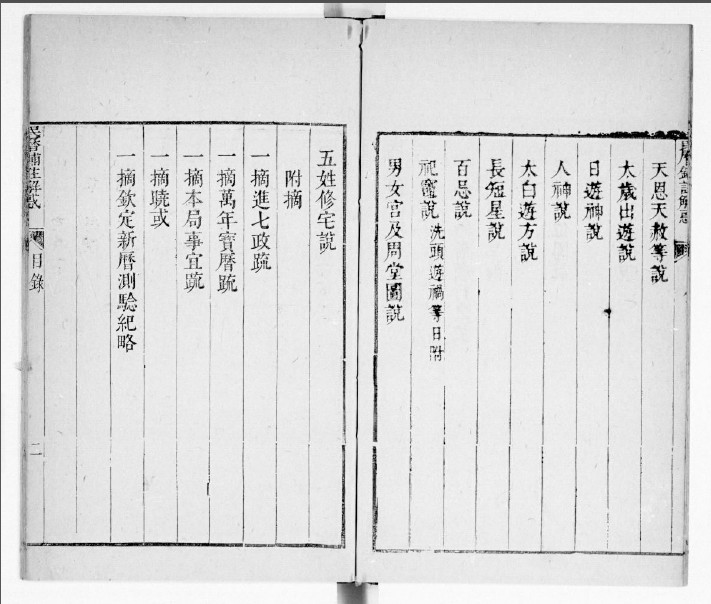 天恩天赦等說
太歲出遊說
日遊神說
人神說
太白遊方說
長短星說
百忌說
祀竈說 洗頭遊禍等日附
男女宮及周堂圖說
五姓修宅說
附摘
一摘進七政疏
一摘萬年寶曆疏
一摘本局事宜疏
一摘曉或
一摘欽定新曆測驗紀略
民曆補註解惑
目錄
二